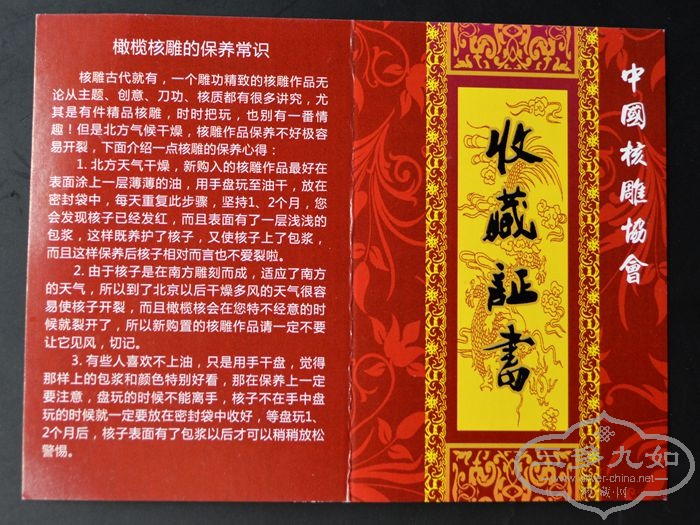 橄榄核雕的保养常识
核雕古代就有，一个雕功精致的核雕作品无
论从主题、创意、刀功、核质都有很多讲究，尤
其是有件精品核雕，时时把玩，也别有一番情
趣！但是北方气候干燥，核雕作品保养不好极容
易开裂，下面介绍一点核雕的保养心得：
1. 北方天气干燥，新购入的核雕作品最好在
表面涂上一层薄薄的油，用手盘玩至油干，放在
密封袋中，每天重复此步骤，坚持1、2个月，您
会发现核子已经发红，而且表面有了一层浅浅的
包浆，这样既养护了核子，又使核子上了包浆，
而且这样保养后核子相对而言也不爱裂啦。
2. 由于核子是在南方雕刻而成，适应了南方
的天气，所以到了北京以后干燥多风的天气很容
易使核子开裂，而且橄榄核会在您特不经意的时
候就裂开了，所以新购置的核雕作品请一定不要
让它见风，切记。
3. 有些人喜欢不上油，只是用手干盘，觉得
那样上的包浆和颜色特别好看，那在保养上一定
要注意，盘玩的时候不能离手，核子不在手中盘
玩的时候就一定要放在密封袋中收好，等盘玩1、
2个月后，核子表面有了包浆以后才可以稍稍放松
警惕。
收藏证書
中國核雕協會
九如
www.silver-china.net
收藏网